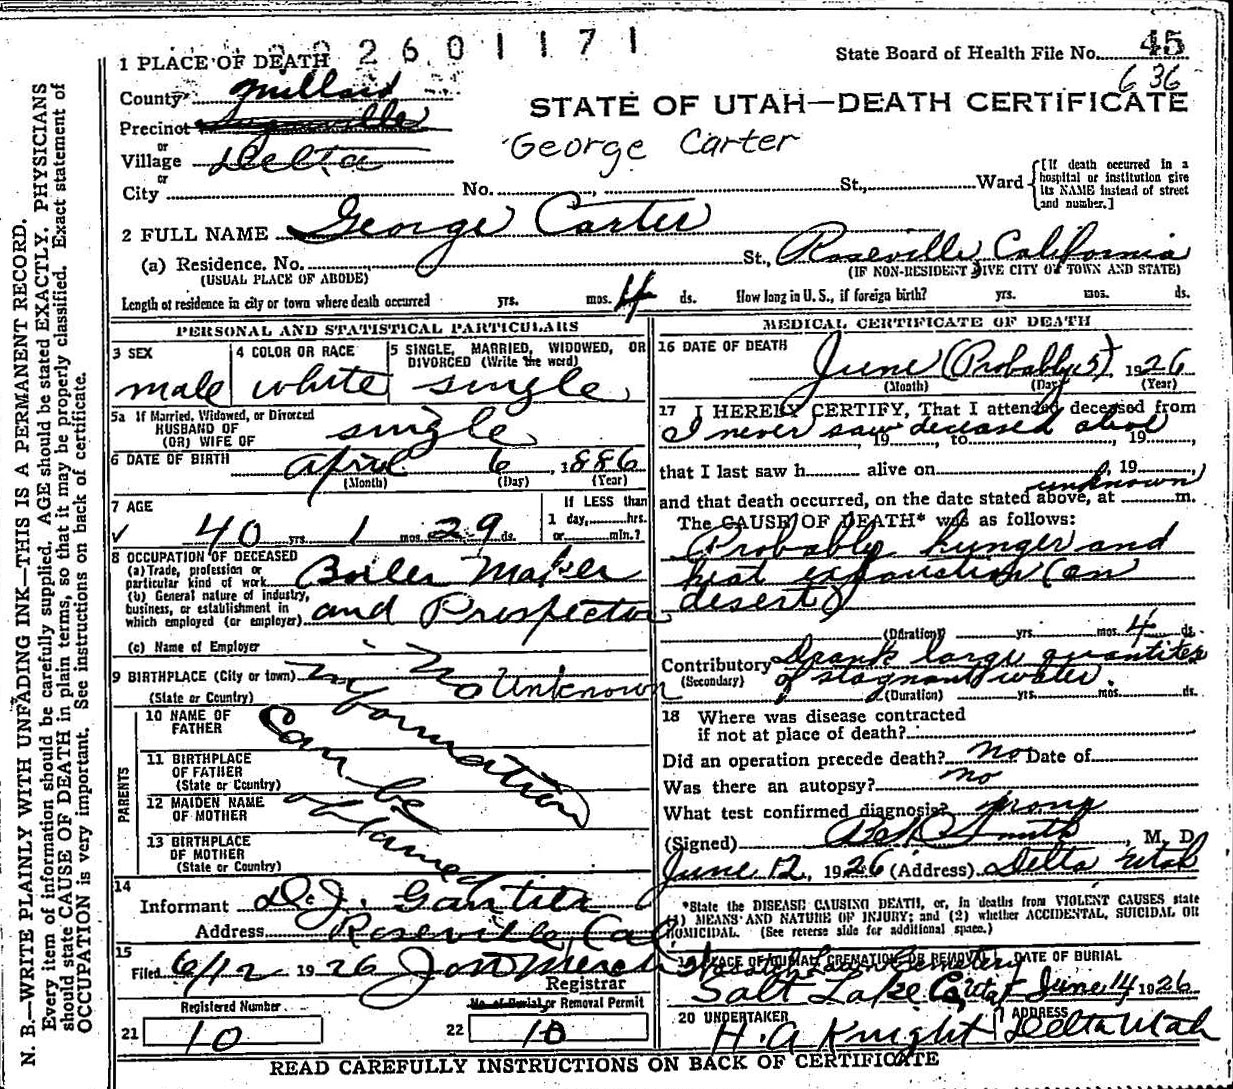 2601171
State Board of Health File No. 45
636
1 PLACE OF DEATH
County Millard
STATE OF UTAH—DEATH CERTIFICATE
Precinct
or
Village Delta
George Carter
or
City No. , St., Ward
[If death occurred in a hospital or institution give its NAME instead of street and number.]
2 FULL NAME George Carter
(a) Residence. No. St., Roseville California
(USUAL PLACE OF ABODE) (IF NON-RESIDENT GIVE CITY OR TOWN AND STATE)
Length of residence in city or town where death occurred yrs. mos. 4 ds. How long in U. S., if foreign birth? yrs. mos. ds.
PERSONAL AND STATISTICAL PARTICULARS
3 SEX male
4 COLOR OR RACE white
5 SINGLE, MARRIED, WIDOWED, OR DIVORCED (Write the word) single
5a If Married, Widowed, or Divorced
HUSBAND OF
(OR) WIFE OF single
6 DATE OF BIRTH April 6, 1886
(Month) (Day) (Year)
7 AGE
✓ 40 yrs. 1 mos. 29 ds.
If LESS than
1 day, hrs.
or min.?
8 OCCUPATION OF DECEASED
(a) Trade, profession or
particular kind of work Boiler Maker
(b) General nature of industry,
business, or establishment in
which employed (or employer) and Prospector
(c) Name of Employer
9 BIRTHPLACE (City or town) Unknown
(State or Country)
No information can be obtained
PARENTS
10 NAME OF
FATHER
11 BIRTHPLACE
OF FATHER
(State or Country)
12 MAIDEN NAME
OF MOTHER
13 BIRTHPLACE
OF MOTHER
(State or Country)
14
Informant D. J.
Address Roseville, Cal
15
Filed 6/12 1926
Registrar
Registered Number
21 10
No. of Burial or Removal Permit
22 10
MEDICAL CERTIFICATE OF DEATH
16 DATE OF DEATH
June (Probably 5) 1926
(Month) (Day) (Year)
17 I HEREBY CERTIFY, That I attended deceased from
I never saw deceased alive
, 19 , to , 19 ,
that I last saw h alive on , 19 ,
unknown
and that death occurred, on the date stated above, at m.
The CAUSE OF DEATH* was as follows:
Probably hunger and
heat exhaustion (on
desert)
(Duration) yrs. mos. 4 ds.
Contributory Drank large quantites
(Secondary) of stagnant water.
(Duration) yrs. mos. ds.
18 Where was disease contracted
if not at place of death?
Did an operation precede death? no Date of
Was there an autopsy? no
What test confirmed diagnosis?
(Signed) Smith, M. D.
June 12, 1926 (Address) Delta Utah
*State the DISEASE CAUSING DEATH, or, in deaths from VIOLENT CAUSES state
(1) MEANS AND NATURE OF INJURY; and (2) whether ACCIDENTAL, SUICIDAL OR
HOMICIDAL. (See reverse side for additional space.)
19 PLACE OF BURIAL, CREMATION OR REMOVAL DATE OF BURIAL
Wasatch Lawn Cemetery
Salt Lake Co, Utah June 14 1926
20 UNDERTAKER ADDRESS
H. A Knight Delta Utah
READ CAREFULLY INSTRUCTIONS ON BACK OF CERTIFICATE
N. B.—WRITE PLAINLY WITH UNFADING INK—THIS IS A PERMANENT RECORD.
Every item of information should be carefully supplied. AGE should be stated EXACTLY. PHYSICIANS
should state CAUSE OF DEATH in plain terms, so that it may be properly classified. Exact statement of
OCCUPATION is very important. See instructions on back of certificate.